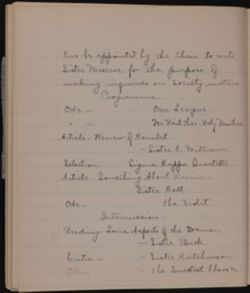 two be appointed by the Chair to write
Sister for the purpose of
making inquiries on Society matters
Programme.
Ode - Our League.
Article - Review of Hamlet.
- Sister E. Williams.
Selection. Sigma Kappa Quartette.
Article - Something About
Sister Ball.
Ode. The Violet
Intermission.
Reading Some Aspects of the
- Sister Buck.
Critic - - Sister Hutchinson
Ode. - The Sweetest Flower.